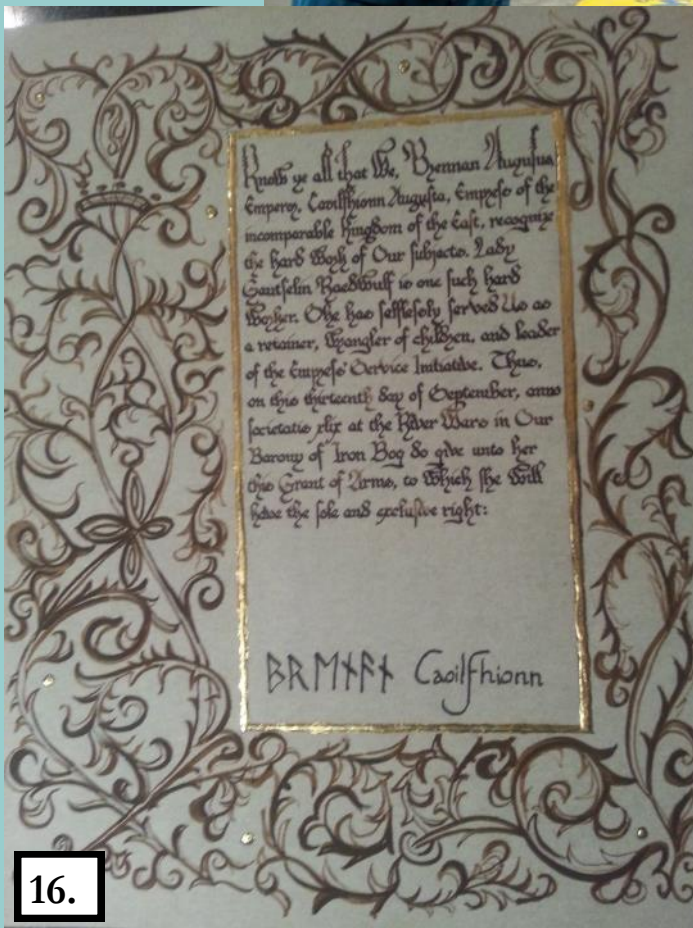 Know ye all that We, Brennan Augustus,
Emperor, Caoilfhionn Augusta, Empress of the
incomparable Kingdom of the East, recognize
the hard Work of Our subjects. Lady
Gautselin Raedwulf is one such hard
Worker. She has selflessly served Us as
a retainer, Wrangler of children, and leader
of the Empress' Service Initiative. Thus,
on this thirteenth day of September, anno
societatis xlix at the River Wars in Our
Barony of Iron Bog do give unto her
this Grant of Arms, to Which she Will
have the sole and exclusive right:
ᛒᚱᛖᚾᚨᚾ Caoilfhionn
16.